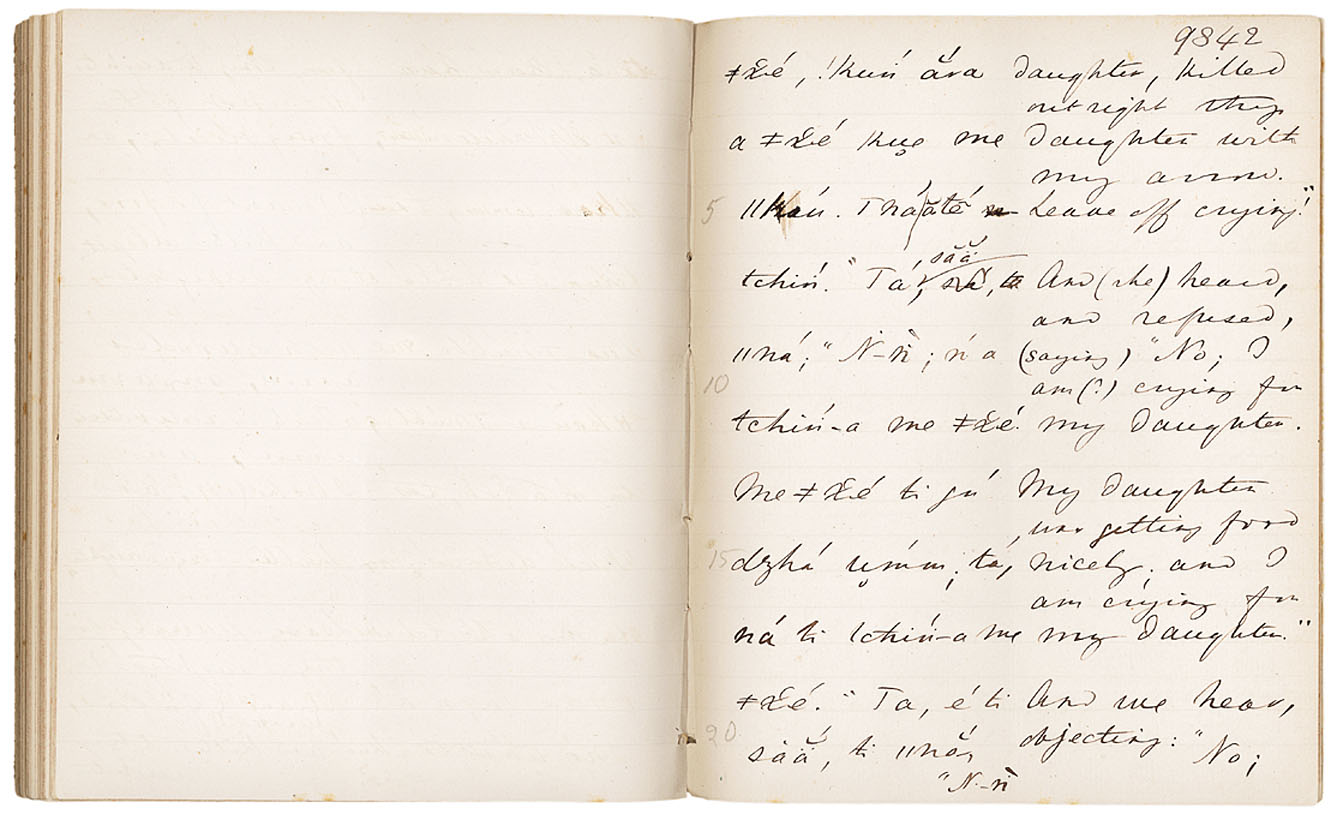 9842
ǂx̌é, !kuń ǎra daughter, killed
outright thy
a ǂx̌é kuẹ me daughter with
my arrow.
5 ǁkáú. Tná ǎté Leave off crying!"
sǎǎ
tchiń." Tá, And (she) heard,
and refused,
ǁná; "Ń-ǹ; ń a (saying) "No; I
10 am (?) crying for
tchiń-a me ǂx̌é. my daughter.
Me ǂx̌é ti gú My daughter
was getting food
15 dzhá ụḿm; tá, nicely; and I
am crying for
ná ti tchiń-a me my daughter."
ǂx̌é." Ta, é ti And we hear,
20 objecting: "No;
sǎǎ, ti ǁnǎ,
"Ń-ǹ